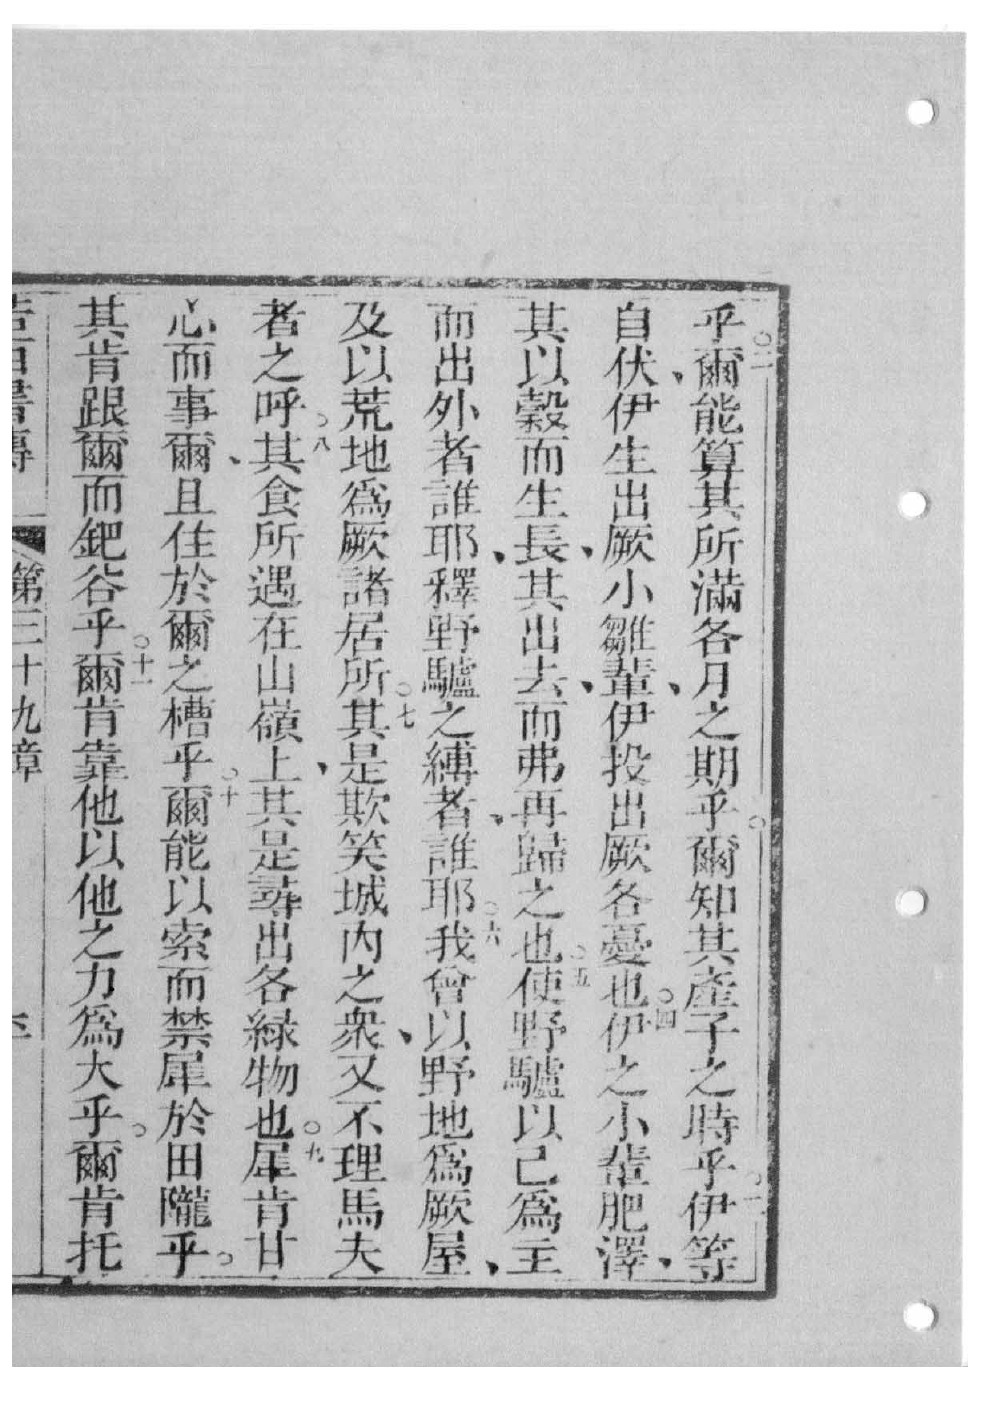 乎○二爾能算其所滿各月之期乎○爾知其產子之時乎○三伊等
自伏、伊生出厥小雛輩、伊投出厥各憂也○四伊之小輩肥澤、
其以穀而生長、其出去、而弗再歸之也○五使野驢以己為主
而出外者誰耶、釋野驢之縛者、誰耶○六我曾以野地為厥屋、
及以荒地為厥諸居所○七其是欺笑城內之衆、又不理馬夫
者之呼○八其食所遇在山嶺上、其是尋出各綠物也○九犀肯甘
心而事爾、且住於爾之槽乎○十爾能以索而禁犀於田隴乎○
其肯跟爾而鈀谷乎○十一爾肯靠他以他之力為大乎○爾肯托
第三十九章